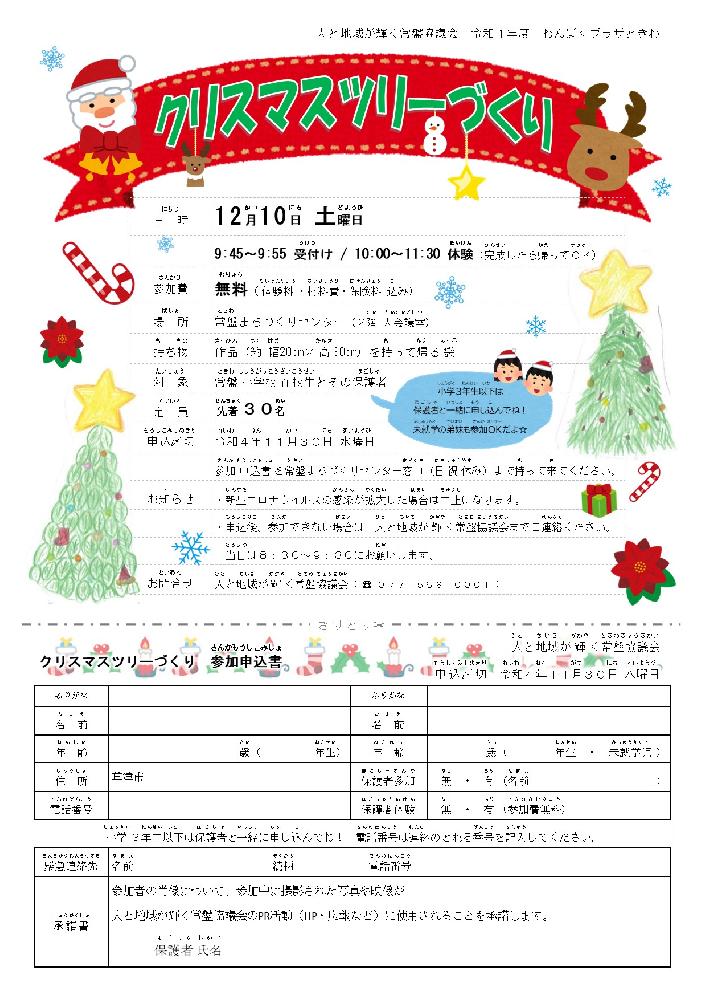 人と地域が輝く常盤協議会 令和4年度 わんぱくプラザときわ
クリスマスツリーづくり
日時 12月10日 土曜日
9:45～9:55 受付け / 10:00～11:30 体験（完成したら帰ってOK）
参加費 無料（体験料・材料費・保険料 込み）
場所 常盤まちづくりセンター（2階 大会議室）
持ち物 作品（約 幅20cm× 高 30cm）を持って帰る 袋
対象 常盤小学校 在校生とその保護者
定員 先着 30名
小学3年生以下は
保護者と一緒に申し込んでね！
未就学の弟妹も参加OKだよ☆
申込〆切 令和4年11月30日 水曜日
参加申込書を常盤まちづくりセンター窓口（日・祝 休み）まで持って来てください。
お知らせ ・新型コロナウイルスの感染が拡大した場合は中止になります。
・申込後、参加できない場合は、人と地域が輝く常盤協議会までご連絡ください。
当日は8：30～9：30にお願いします。
お問合せ 人と地域が輝く常盤協議会（☎ 077-568-0001）
きりとり
クリスマスツリーづくり 参加申込書
人と地域が輝く常盤協議会
申込〆切 令和4年11月30日 水曜日
ふりがな ふりがな
名前 名前
年齢 歳（ 年生） 年齢 歳（ 年生 ・ 未就学児）
住所 草津市 保護者参加 無 ・ 有（名前 ）
電話番号 保護者体験 無 ・ 有（参加費無料）
小学3年生以下は保護者と一緒に申し込んでね！ 電話番号は連絡のとれる番号を記入してください。
緊急連絡先 名前 続柄 電話番号
承諾書 参加者の肖像について、参加中に撮影された写真や映像が
人と地域が輝く常盤協議会のPR活動（HP・広報など）に使用されることを承諾します。
保護者 氏名